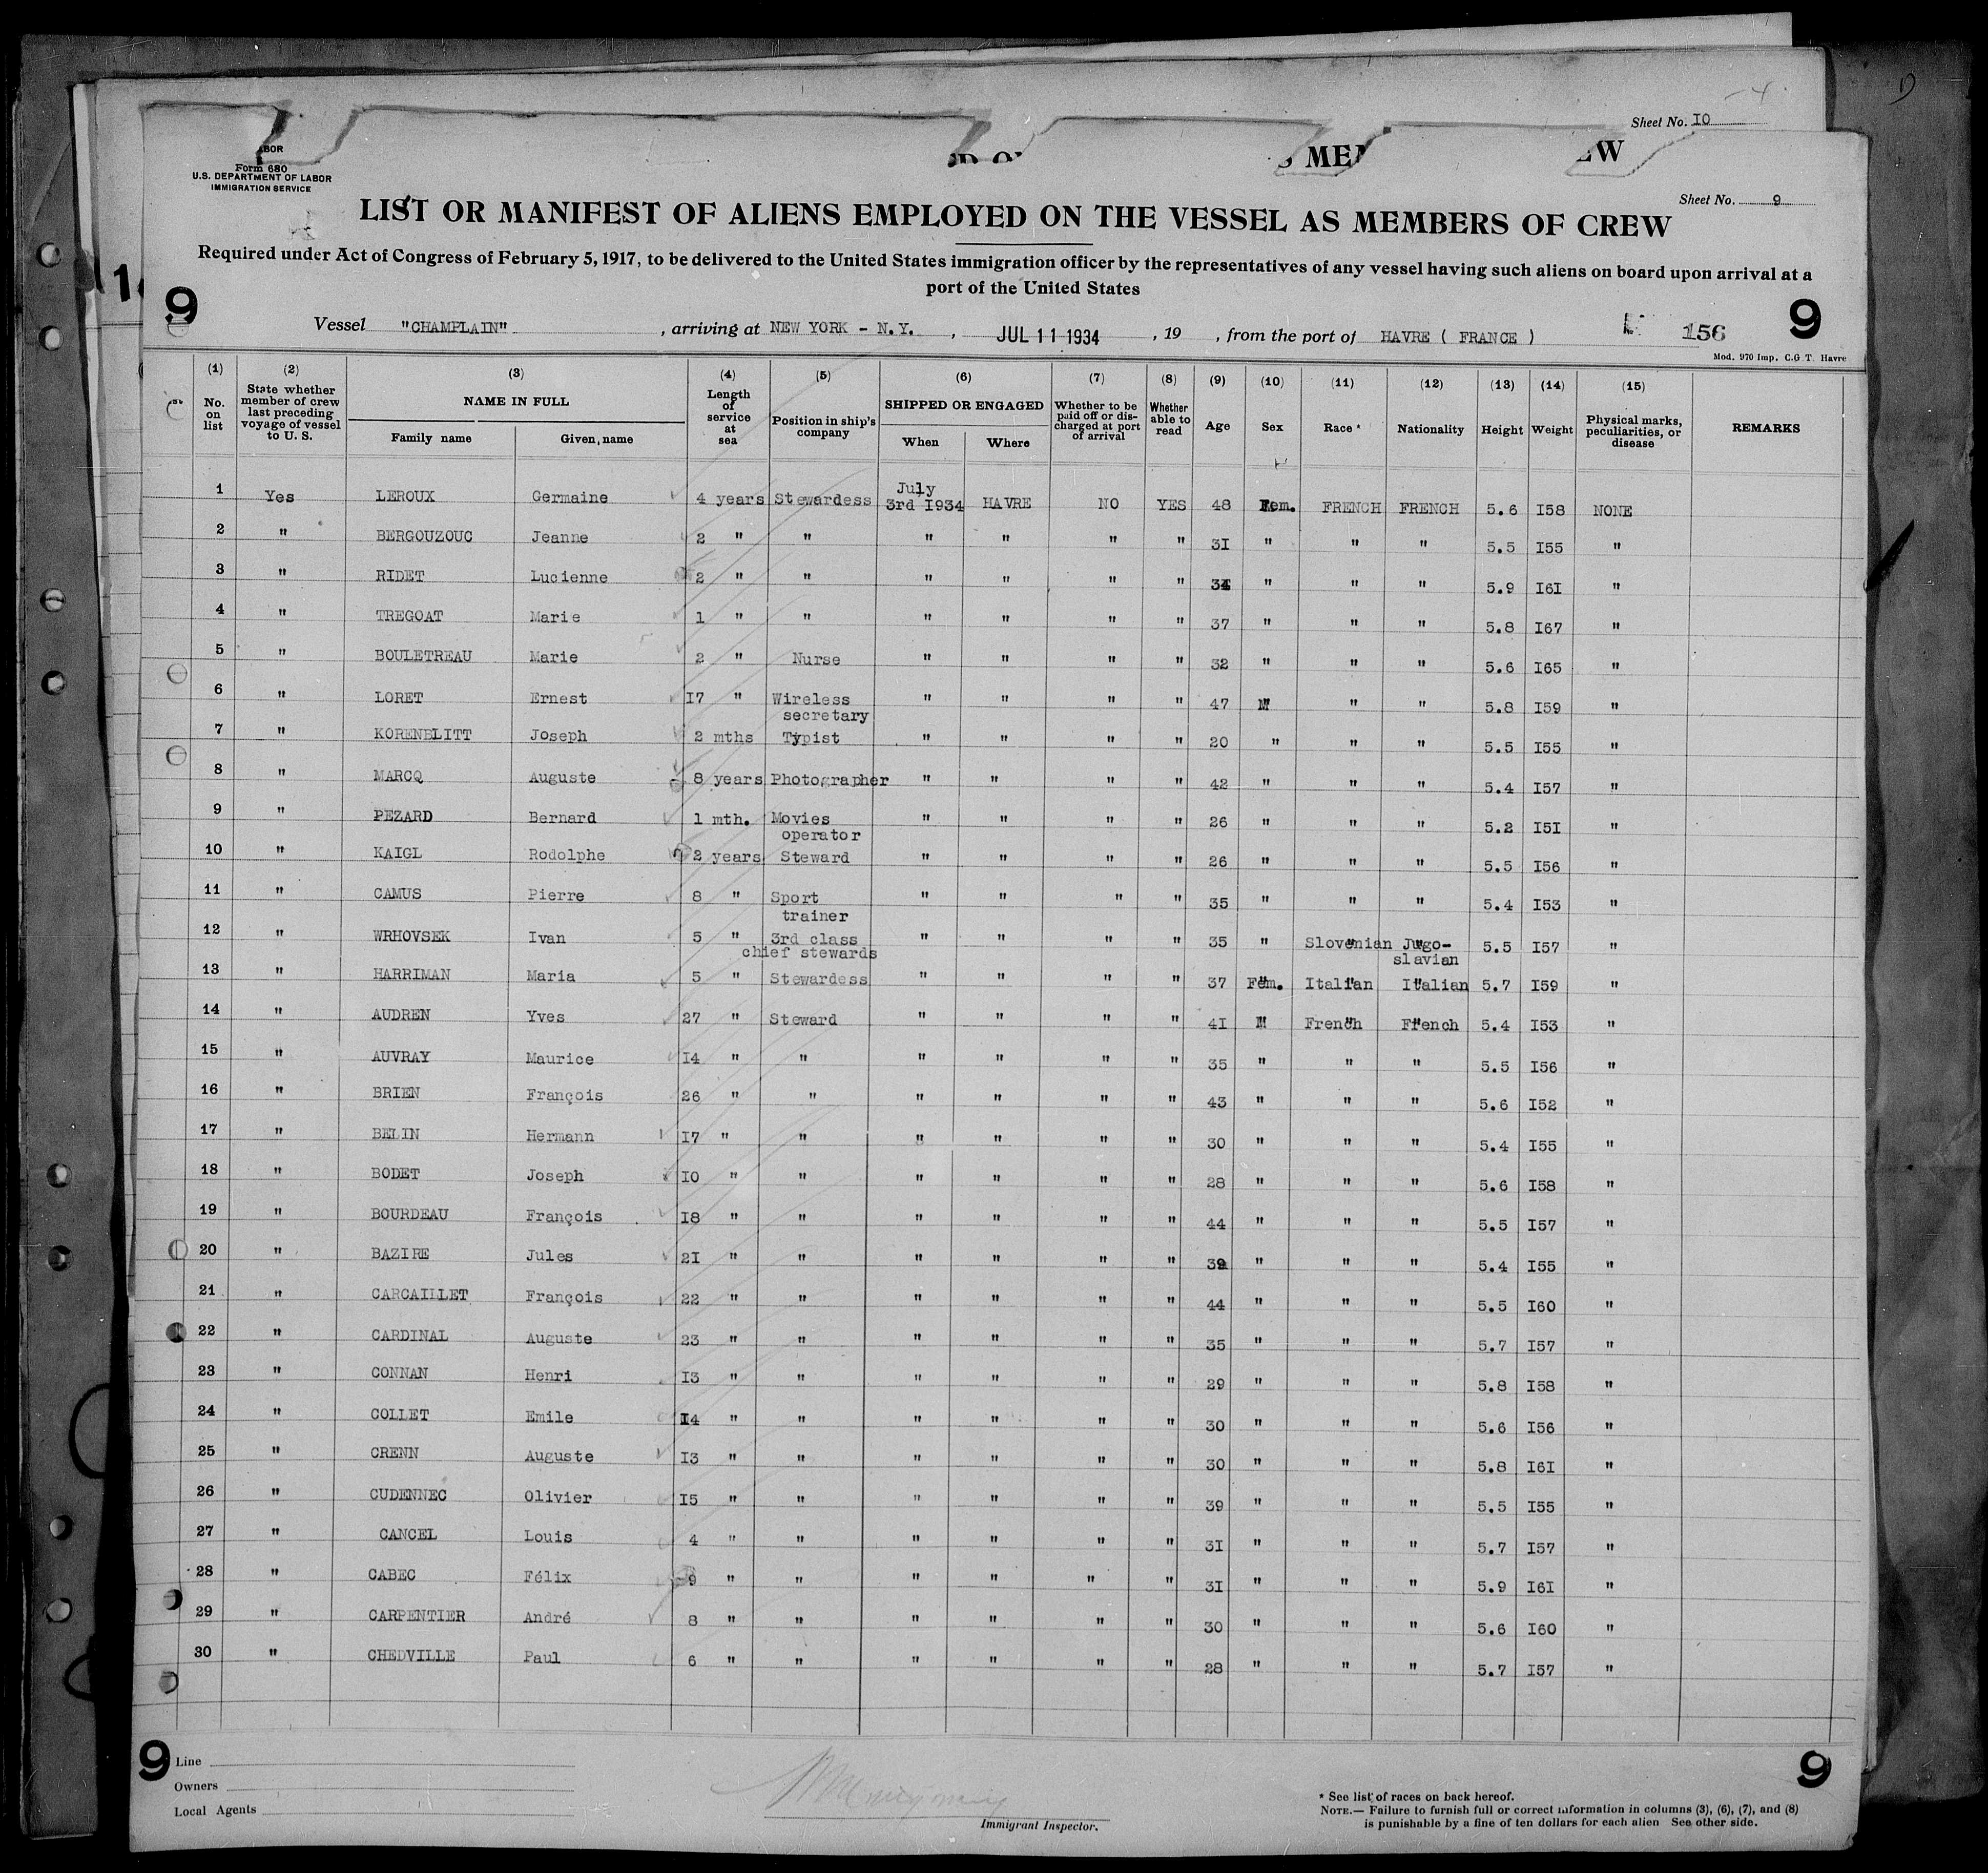 Sheet No. IO
ABOR
Form 680
U.S. DEPARTMENT OF LABOR
IMMIGRATION SERVICE
Sheet No. 9
LIST OR MANIFEST OF ALIENS EMPLOYED ON THE VESSEL AS MEMBERS OF CREW
Required under Act of Congress of February 5, 1917, to be delivered to the United States immigration officer by the representatives of any vessel having such aliens on board upon arrival at a
port of the United States
9 9
Vessel "CHAMPLAIN" , arriving at NEW YORK - N.Y. , JUL 11 1934 , 19 , from the port of HAVRE ( FRANCE ) 156
Mod. 970 Imp. C.G.T. Havre
(1) (2) (3) (4) (5) (6) (7) (8) (9) (10) (11) (12) (13) (14) (15)
No. on list State whether member of crew last preceding voyage of vessel to U. S. NAME IN FULL Family name Given name Length of service at sea Position in ship's company SHIPPED OR ENGAGED When Where Whether to be paid off or discharged at port of arrival Whether able to read Age Sex Race * Nationality Height Weight Physical marks, peculiarities, or disease REMARKS
1 Yes LEROUX Germaine 4 years Stewardess July 3rd I934 HAVRE NO YES 48 Fem. FRENCH FRENCH 5.6 I58 NONE
2 " BERGOUZOUC Jeanne 2 " " " " " " 3I " " " 5.5 I55 "
3 " RIDET Lucienne 2 " " " " " " " " " 5.9 I6I "
4 " TREGOAT Marie 1 " " " " " " 37 " " " 5.8 I67 "
5 " BOULETREAU Marie 2 " Nurse " " " " 32 " " " 5.6 I65 "
6 " LORET Ernest I7 " Wireless " " " " 47 M " " 5.8 I59 "
7 " KORENBLITT Joseph 2 mths secretary Typist " " " " 20 " " " 5.5 I55 "
8 " MARCQ Auguste 8 years Photographer " " " " 42 " " " 5.4 I57 "
9 " PEZARD Bernard 1 mth. Movies operator " " " " 26 " " " 5.2 I5I "
10 " KAIGL Rodolphe 2 years Steward " " " " 26 " " " 5.5 I56 "
11 " CAMUS Pierre 8 " Sport trainer " " " " 35 " " " 5.4 I53 "
12 " WRHOVSEK Ivan 5 " 3rd class chief stewards " " " " 35 " Slovenian Jugo-slavian 5.5 I57 "
13 " HARRIMAN Maria 5 " Stewardess " " " " 37 Fem. Italian Italian 5.7 I59 "
14 " AUDREN Yves 27 " Steward " " " " 4I M French French 5.4 I53 "
15 " AUVRAY Maurice I4 " " " " " " 35 " " " 5.5 I56 "
16 " BRIEN François 26 " " " " " " 43 " " " 5.6 I52 "
17 " BELIN Hermann I7 " " " " " " 30 " " " 5.4 I55 "
18 " BODET Joseph IO " " " " " " 28 " " " 5.6 I58 "
19 " BOURDEAU François I8 " " " " " " 44 " " " 5.5 I57 "
20 " BAZIRE Jules 2I " " " " " " " " " 5.4 I55 "
21 " CARCAILLET François 22 " " " " " " 44 " " " 5.5 I60 "
22 " CARDINAL Auguste 23 " " " " " " 35 " " " 5.7 I57 "
23 " CONNAN Henri I3 " " " " " " 29 " " " 5.8 I58 "
24 " COLLET Emile I4 " " " " " " 30 " " " 5.6 I56 "
25 " CRENN Auguste I3 " " " " " " 30 " " " 5.8 I6I "
26 " CUDENNEC Olivier I5 " " " " " " 39 " " " 5.5 I55 "
27 " CANCEL Louis 4 " " " " " " 3I " " " 5.7 I57 "
28 " CABEC Félix 9 " " " " " " 3I " " " 5.9 I6I "
29 " CARPENTIER André 8 " " " " " " 30 " " " 5.6 I60 "
30 " CHEDVILLE Paul 6 " " " " " " 28 " " " 5.7 I57 "
9 9
Line
Owners
Local Agents
Immigrant Inspector.
* See list of races on back hereof.
NOTE.— Failure to furnish full or correct information in columns (3), (6), (7), and (8)
is punishable by a fine of ten dollars for each alien See other side.